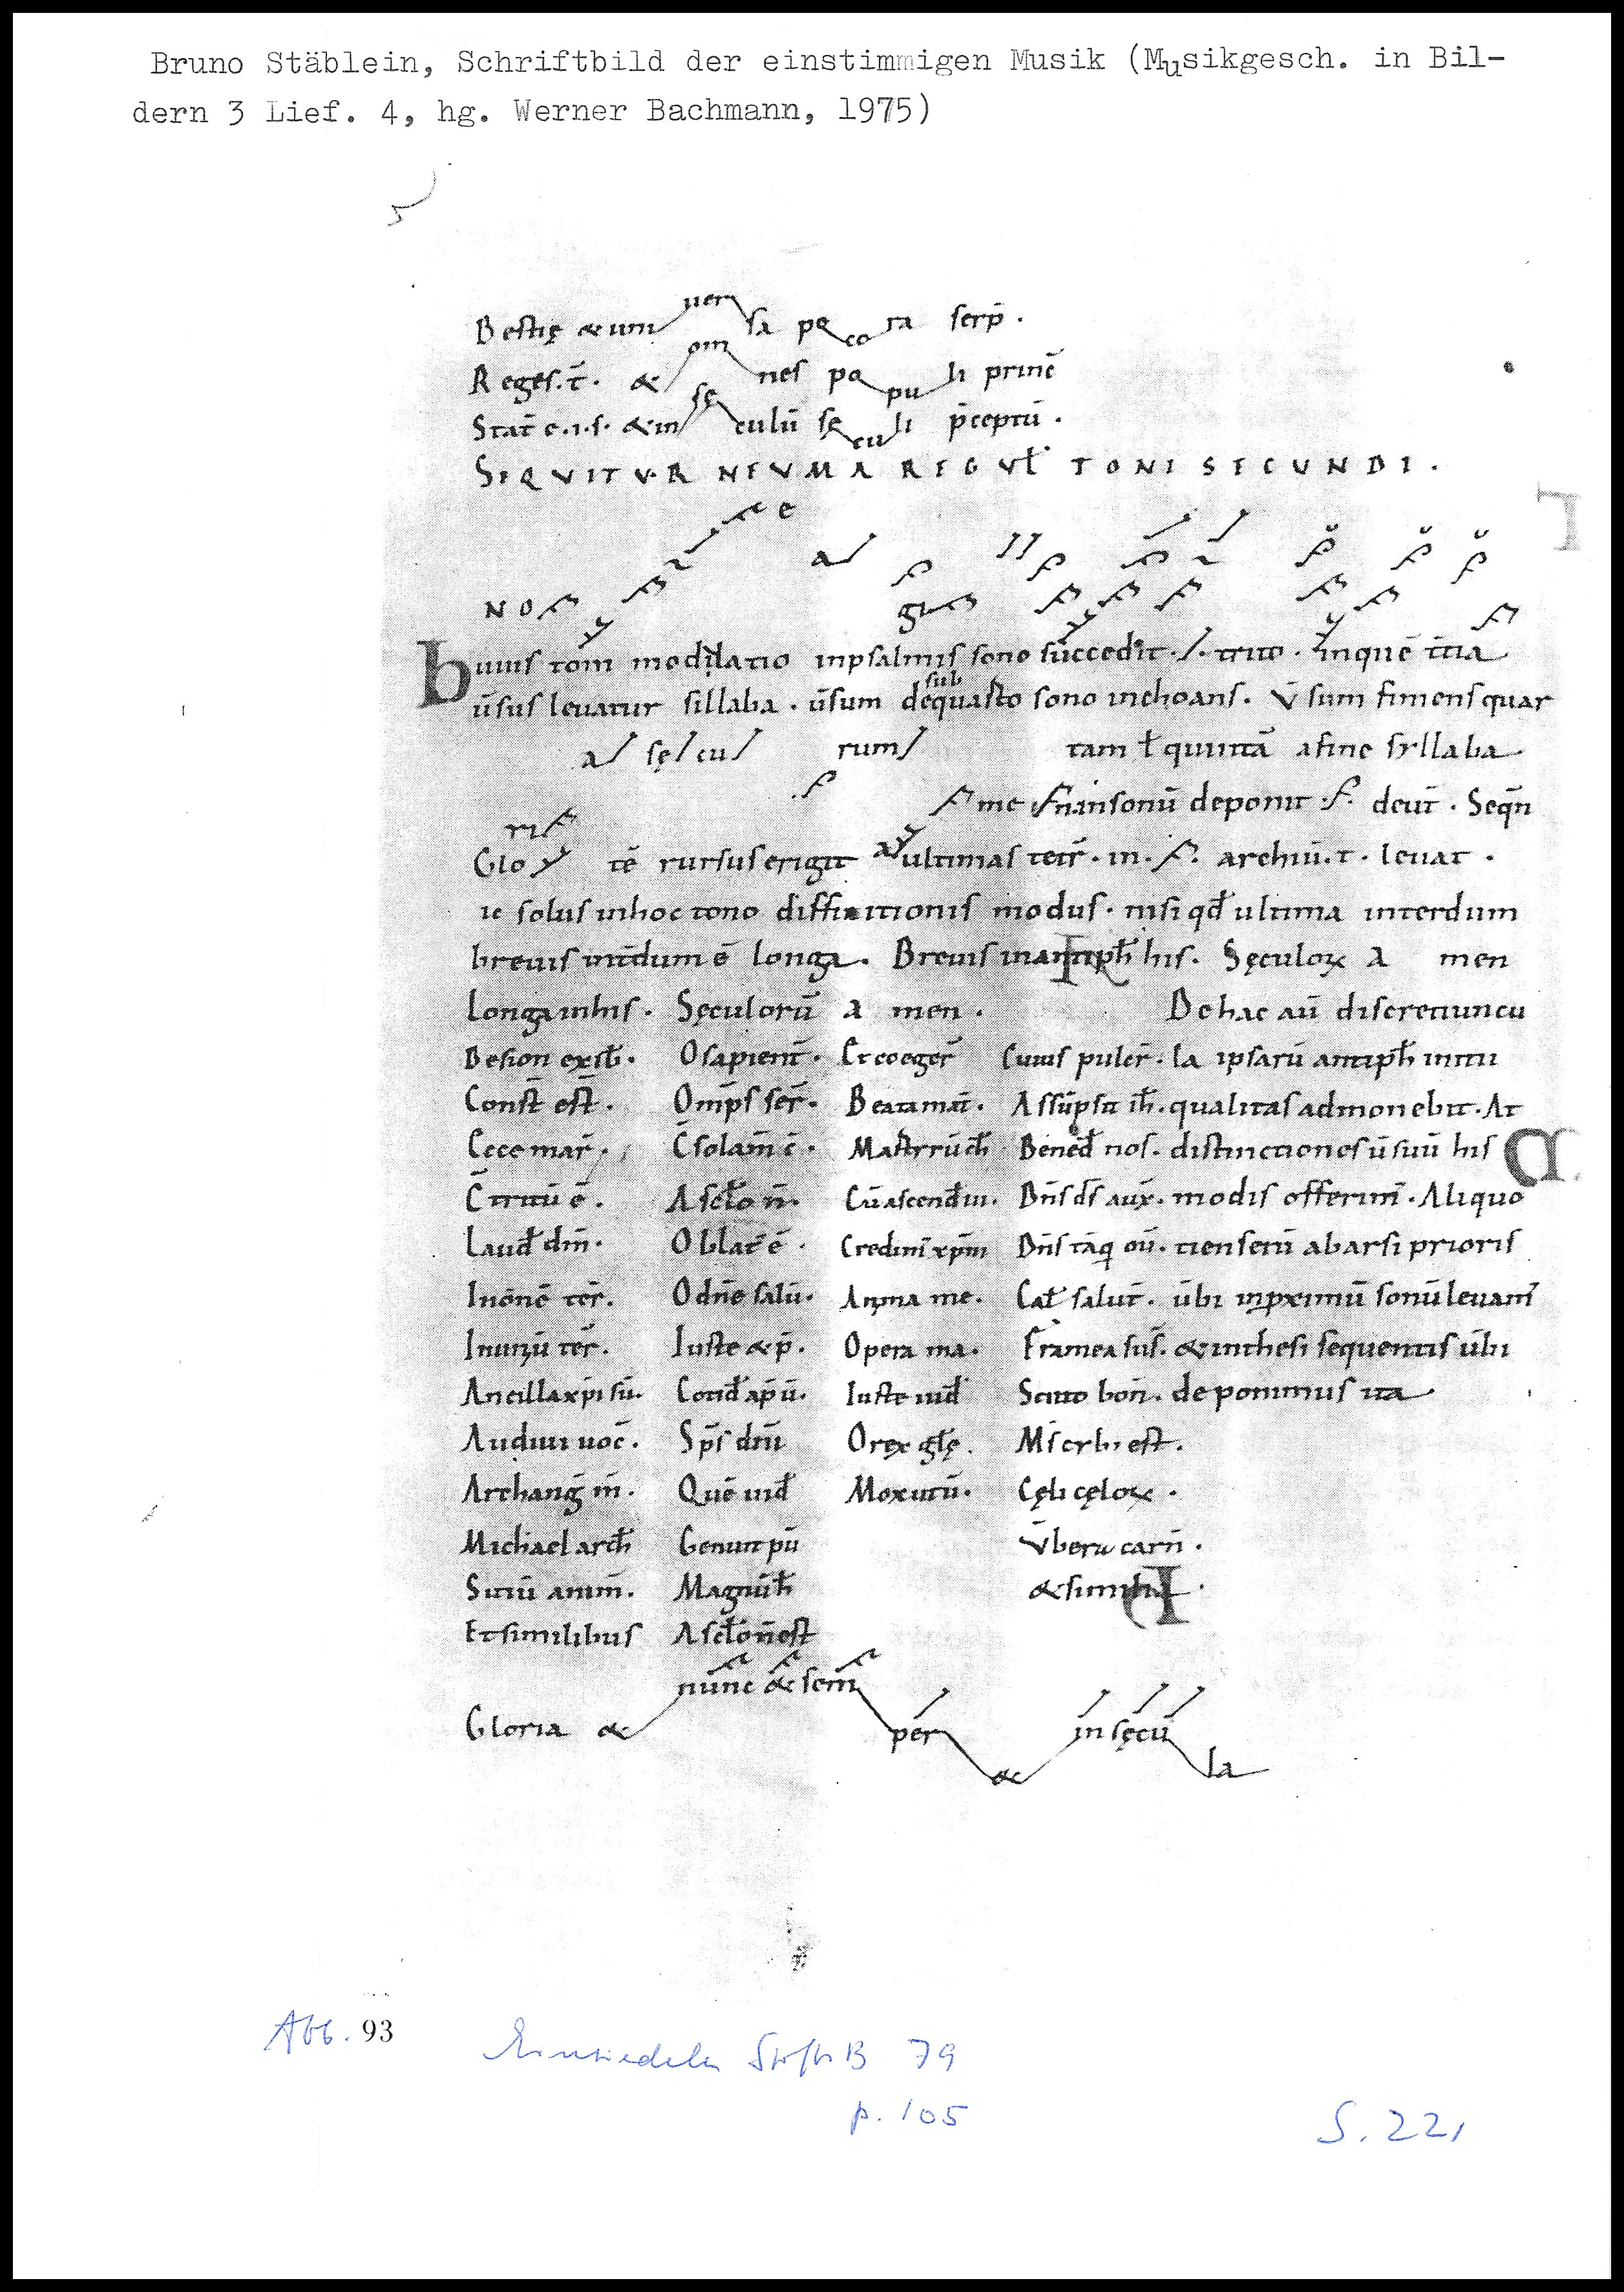 Bruno Stäblein, Schriftbild der einstimmigen Musik (Musikgesch. in Bil-
dern 3 Lief. 4, hg. Werner Bachmann, 1975)
Bestię & uni uer sa pe co ra serp̄ .
Reges.t̄. & om nes po pu li princ̄
Stat̄ e.i.s. & in sę culū sę cu li p̄ceptū .
SEQUITUR NEUMA REGUL̄ TONI SECUNDI .
NO e
a
gi
huius toni modulatio inpsalmis sono succedit . trito . inquē t̄tia
ūsus leuatur sillaba . ūsum dequarto sono inchoans . Ūsum finiens quar
sub
a sę cu rum tam ł quintā afine syllaba
me sonū deponit deut̄ . Seqn̄
ri
Glo tē rursus erigit ultimas tetr̄ . in . archiū . t . leuat .
ie solus inhoc tono diffinitionis modus . nisi qđ ultima interdum
breuis int̄dum ē longa . Breuis inantiph̄ his . Sęculoꝝ A men
Longa inhis . Sęculorū A men . De hac aū discretiuncu
Desion exib̄ . O sapient̄ . Et coeger̄ Cuius pulcr̄ . la ipsarū antiph̄ initii
Const̄ est̄ . Om̄ps ser̄ . Beata mat̄ . Assūpsit ih̄ . qualitas admonebit . At
Ecce mar̄ . C̄solam̄ ē . Bened̄ nos . distinctiones ūsuū his
C̄ tritū ē . A sclō n̄ . Cū ascend̄ . Dn̄s ds̄ aux̄ . modis offerim̄ . Aliquo
Laud̄ dn̄i . Oblat̄ ē . Credim̄ xp̄m Dn̄s tāq̄ oū . tiensem̄ abarsi prioris
Inōnē ter̄ . O dn̄e salū . Anima me . Cat̄ salut̄ . ūbi inproximū sonū leuam̄
ter̄ . Iuste & p̄ . Opera ma . Framea sus̄ . & inthesi sequentis ūbi
Ancilla xp̄i sū . Cotid̄ ap̄ ū . Iuste iud̄ Scuto bon̄ . deponimus ita
Audiui uoc̄ . Sp̄s dn̄i O rex glę̄ . M̄s crbi est .
Archanḡ m̄ . Quē uid̄ Mox utū . Cęli cęloꝝ .
Michael arch̄ Genuit pū Ūbera carn̄ .
Sitiū anim̄ . Magnū h̄ & similia .
Et similibus A sclō n̄ est
nunc & sem̄
Gloria & per & in sęcu la
Abb. 93
Einsiedeln StiftsB 79
p. 105
S. 221